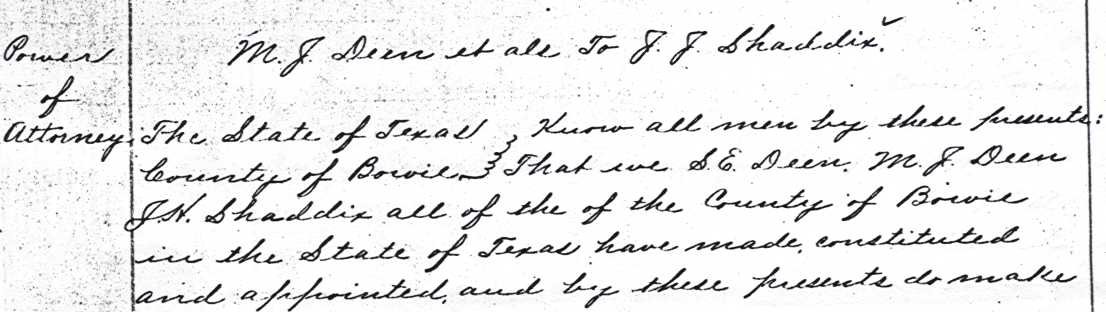 M. J. Deen et als To J. J. Shaddix.
Power
of
Attorney.
The State of Texas } Know all men by these presents:
County of Bowie } That we S. E. Deen. M. J. Deen
J. H. Shaddix all of the of the County of Bowie
in the State of Texas have made, constituted
and appointed, and by these presents do make